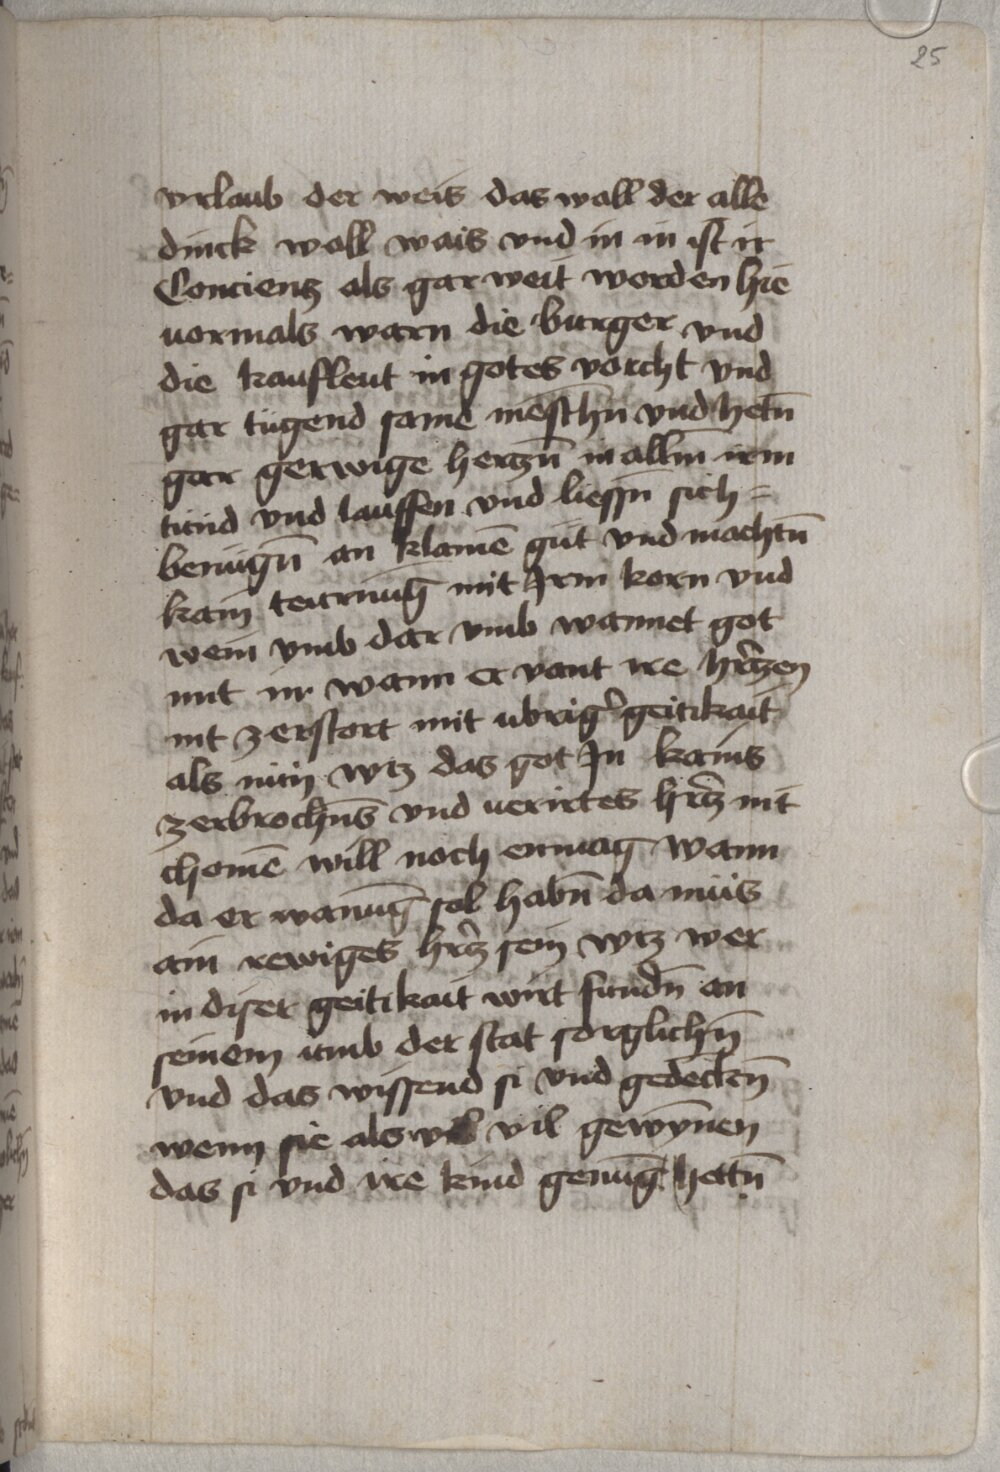 25
vrlaub der weis das woll der alle
dinck woll wais vnd in in ist ir
Concienz als gar weit worden hie
uormals warn die burger vnd
die kaufleut in gotes vorcht vnd
gar tügend same mēschn̄ vnd hetn̄
gar gerwige hertzn̄ in alln̄ irm
tünd vnd lauffen vnd liessn̄ sich =
benügn̄ an klamē güt vnd machtn̄
kain teurnūg mit Irm korn vnd
wein vmb dar vmb wannet got
mit in wann er vant ire hrͤtzen
nit zerstort mit ubrigͤ geitikait
als nun wtz das got In kains
zerbrochn̄s vnd uerirtes hrͤtz nit
chomē will noch enmag wann
da er wanūg sol habn̄ da müs
ain rewiges hrͤtz sein wtz wer
in diser geitikait wirt fundn̄ an
seinem umb der stat sorglichn̄
vnd das wissend si vnd gedeckn̄
wenn sie als vil vil gewȳnen
das si vnd ire kind genūg hettn̄